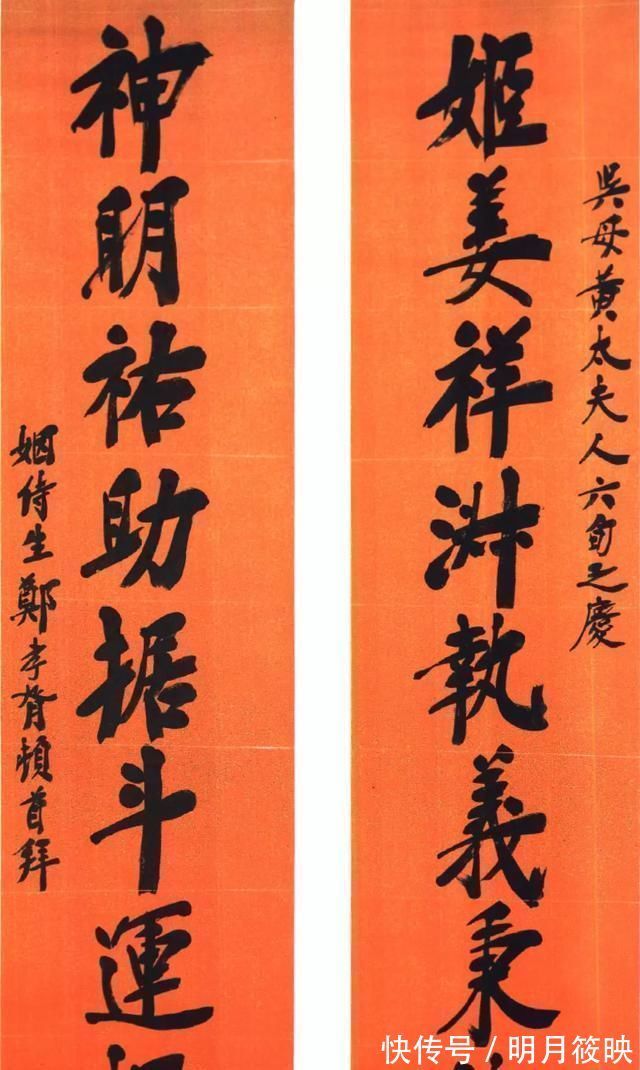 吳母黃太夫人六旬之慶
姬姜祥淑執義秉
神明祐助据斗運
姻侍生鄭孝胥頓首拜
快传号/明月筱映